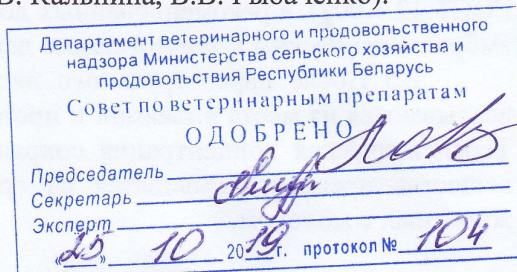 В. Кальнина, В.В. Рыбаченко).
Департамент ветеринарного и продовольственного
надзора Министерства сельского хозяйства и
продовольствия Республики Беларусь
Совет по ветеринарным препаратам
ОДОБРЕНО
Председатель
Секретарь
Эксперт
«25» 10 2019 г. протокол № 104